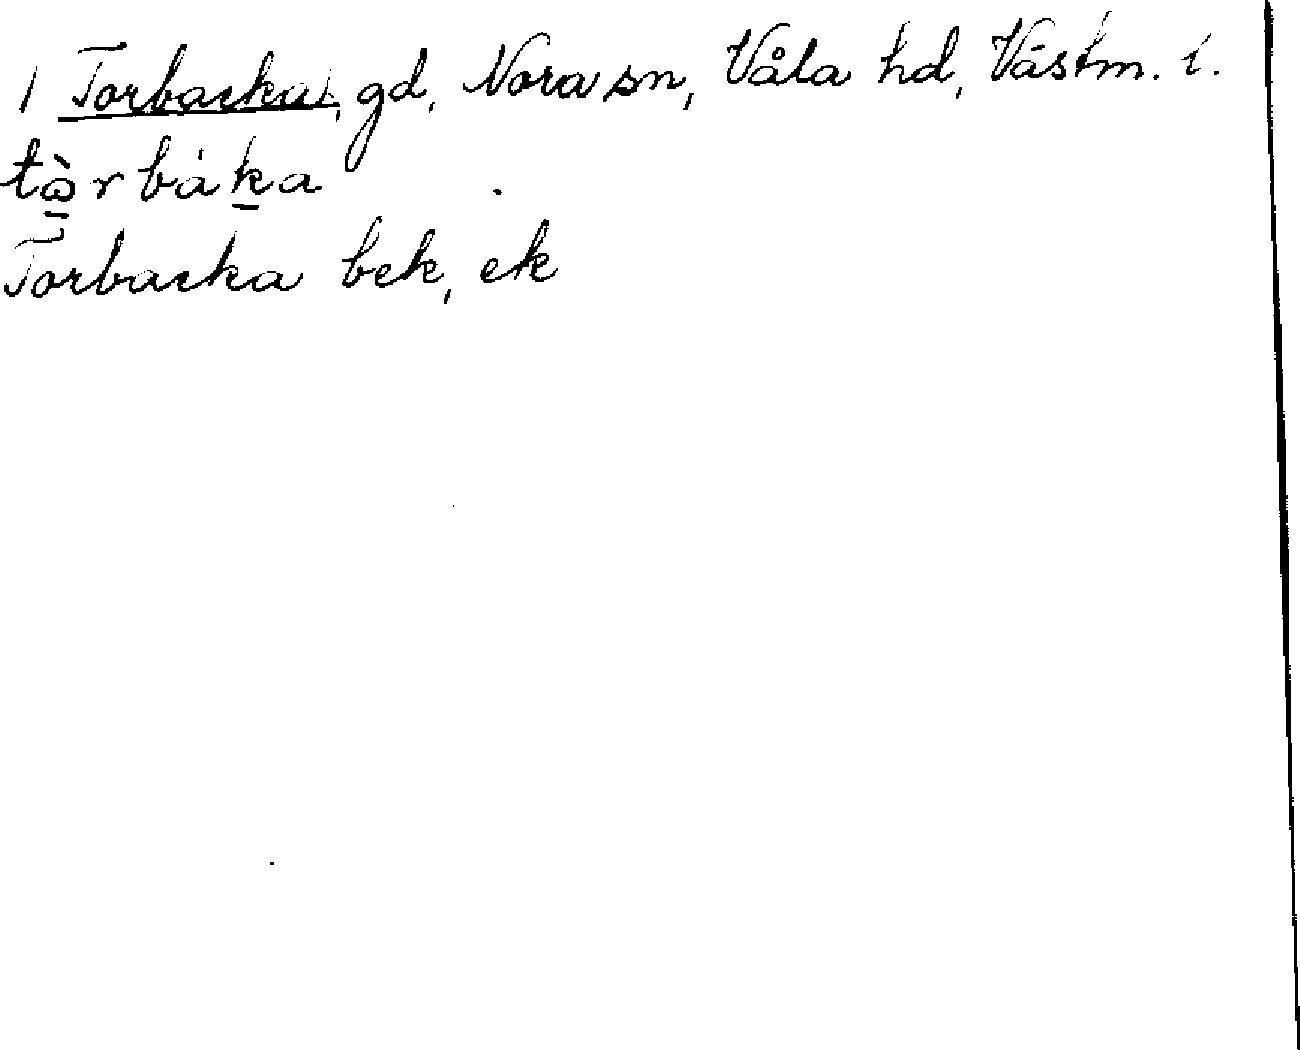 1 Torbacka, gd, Nora sn, Våla hd, Västm. l.
tὰrbáka
Torbacka bek, ek